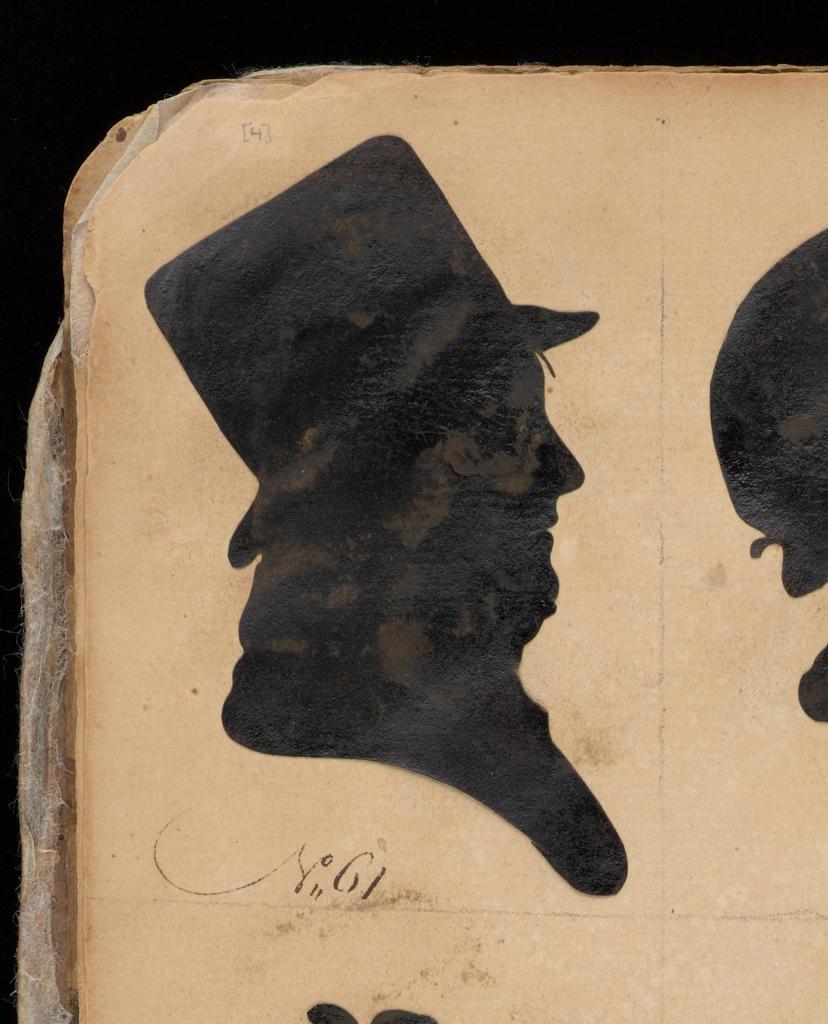 [4]
No 61